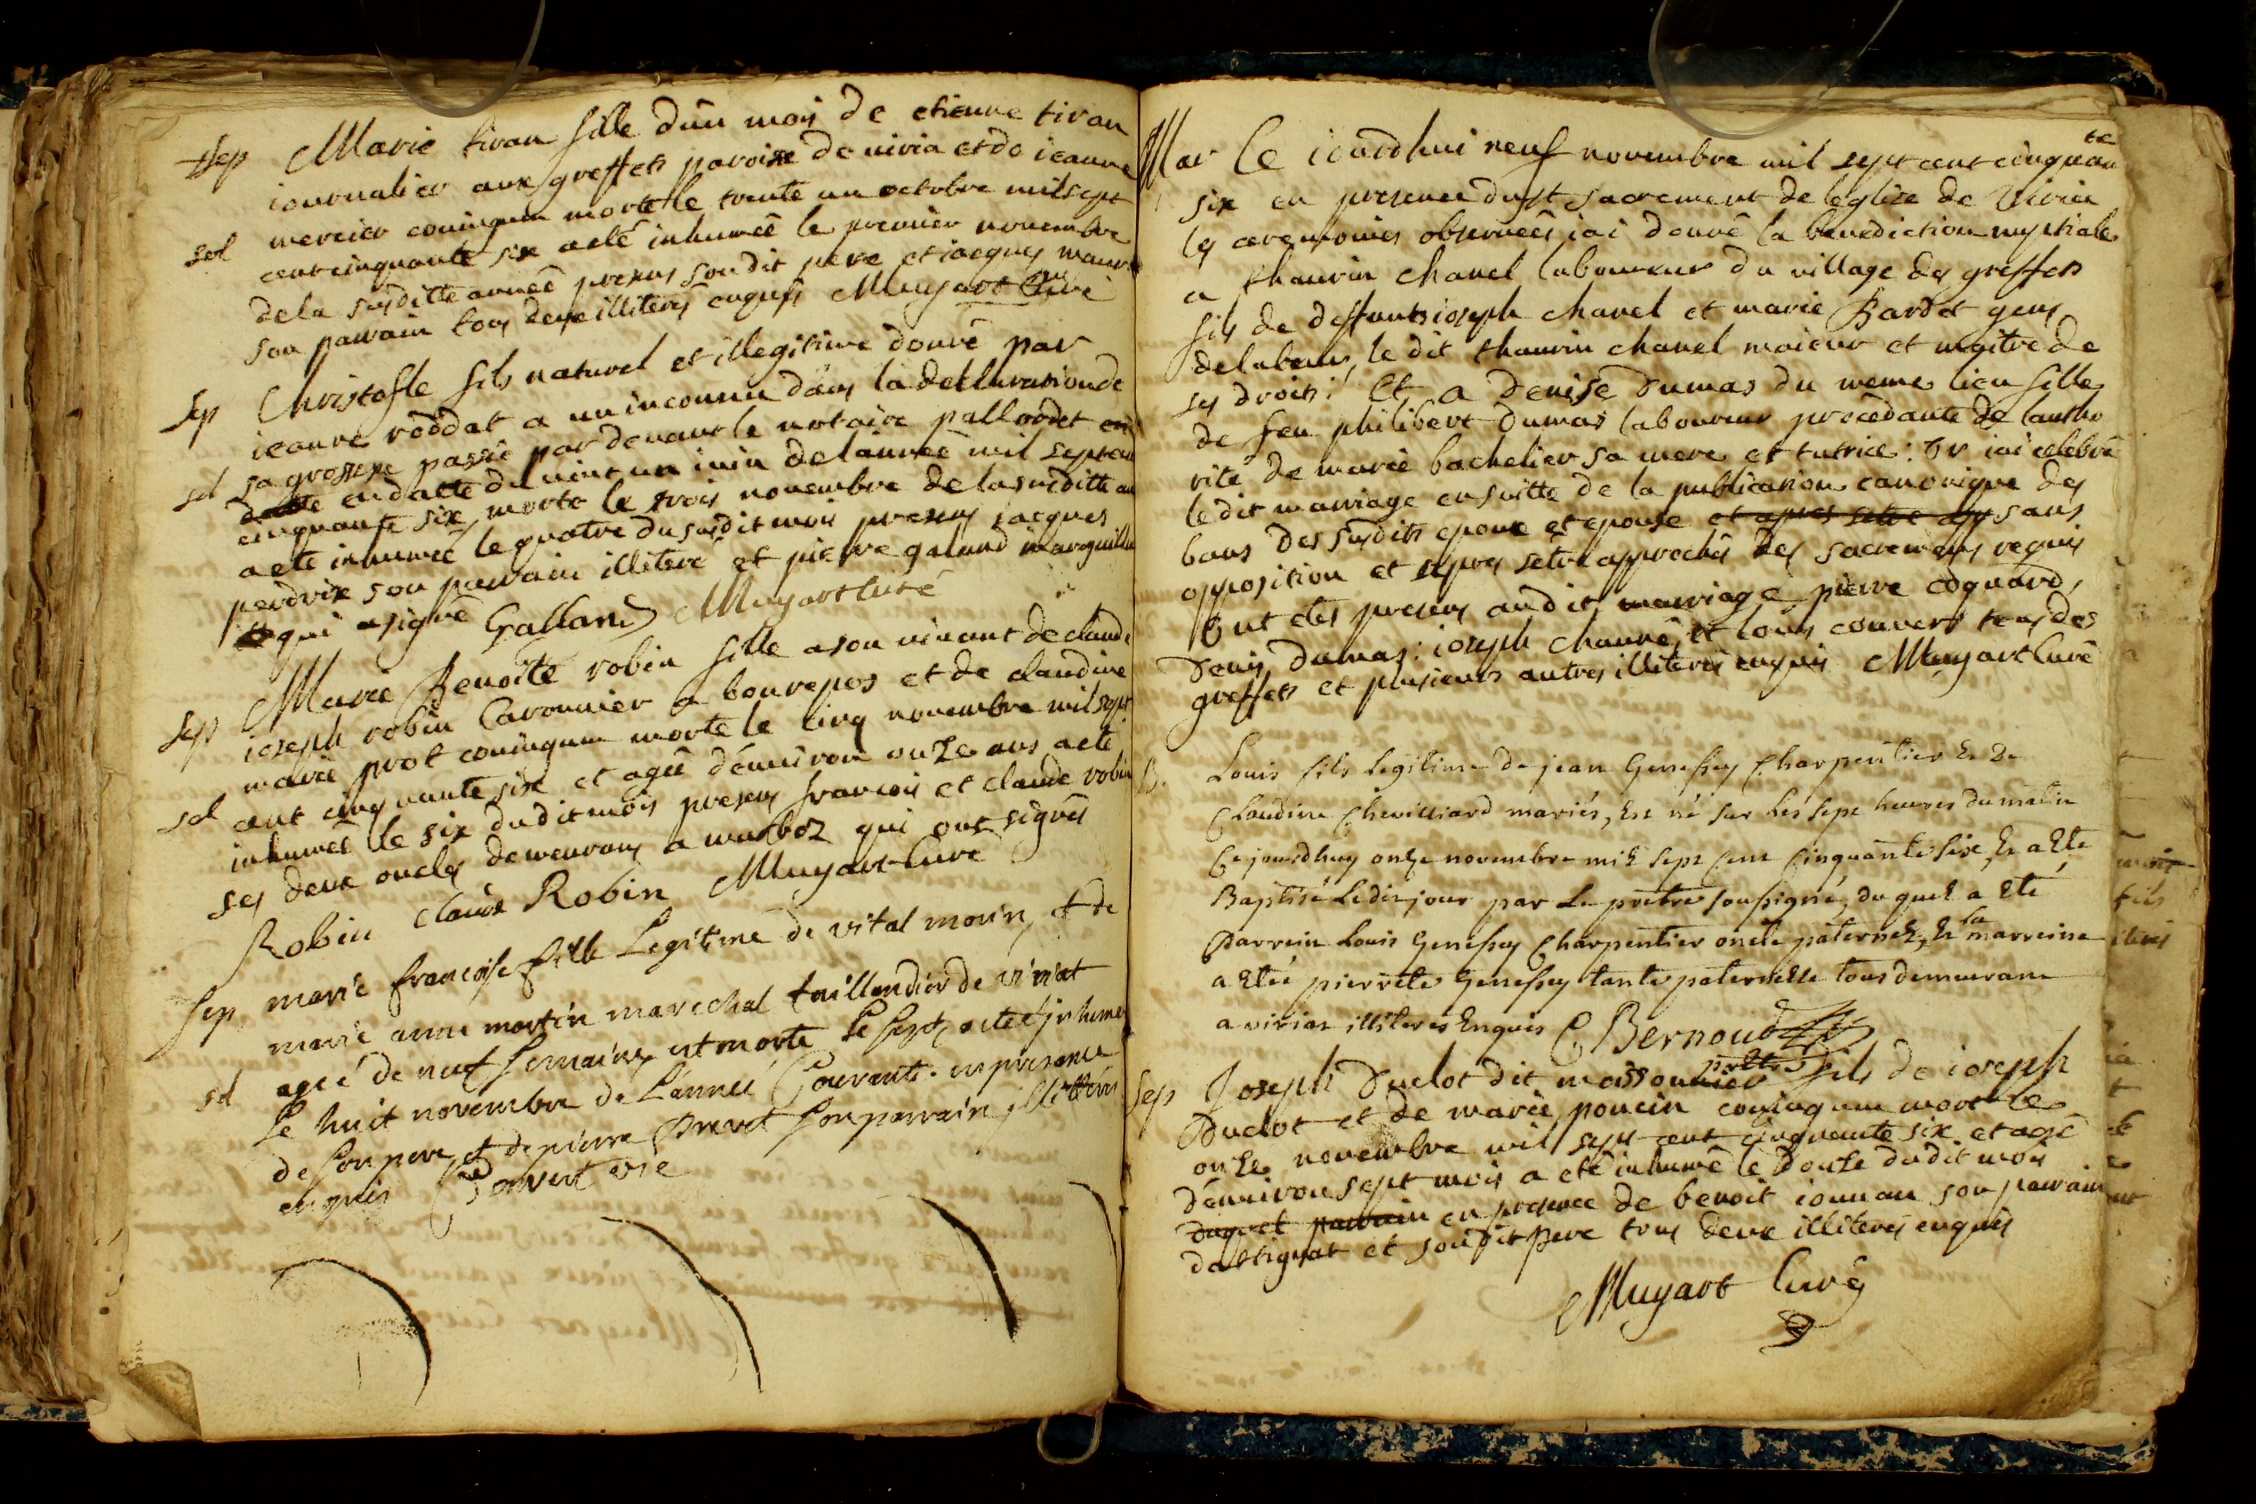 Sep Marie tiran fille d'un mois de etienne tiran
iournalier aux greffets paroisse de viria et de ieanne
mercier coniugum morte le trente un octobre mil sept
sol cent cinquante six a eté inhumeé le premier novembre
de la susditte anneé presens son dit pere et iacques
son parrain tous deux illiterés enquis Muyart Curé
Sep Christofle fils naturel et illegitime donné par
ieanne roddat a un inconnu dans la declaration de
sa grossesse passeé par devant le notaire pallordet en
sol datte en datte du vint un iuin de l'anneé mil sept cent
cinquante six, morte le trois novembre de la susditte an
a eté inhumeé le quatre du susdit mois presens iacques
perdrix son parrain illiteré et pierre galand marguillier
qui a signé Galland Muyart Curé
Sep Marie Benoite robin fille a son vivant de claude
ioseph robin Caronnier a bourepos et de claudine
marie prost coniugum morte le cinq novembre mil sept
sol cent cinquante six et ageé d'environ onze ans a eté
inhumeé le six dudit mois presens francois et claude robin
ses deux oncles demeurans a marboz qui ont signés
Robin Claude Robin Muyart Curé
Sep marie francoise fille Legitime de vital morin, et de
marie anne martin marechal taillandier de viriat
sol ageé de neuf semaines est morte le sept, a eteé inhumeé
Le huit novembre de L'anneé Courante. en presence
de son pere, et de pierre son parrain illitterés
enquis Convert vic
Mar Ce iourdhui neuf novembre mil sept cent cinquan te
six en presence du st sacrement de l'eglise de Viria
les ceremonies observeés i'ai donné la benediction nuptiale
a thaurin chanel laboureur du village des greffets
fils de deffunts ioseph chanel et marie Bardet gens
de labeur, le dit thaurin chanel maieur et maitre de
ses droits: Et a denise dumas du meme lieu fille
de feu philibert dumas laboureur procedante de l'autho
rité de marie bachelier sa mere et tutrice: Or i'ai celebré
le dit mariage ensuitte de la publication canonique des
bans des susdits epoux et epouse et apres setre app sans
opposition et apres setre approchés des sacremens requis
Ont etés presens audit mariage pierre coquard,
denis dumas: ioseph chanel, et louis convert tous des
greffets et plusieurs autres illiterés enquis Muyart Curé
B. Louis fils Legitime de jean Genessey Charpentier Et de
Claudine Chevilliard mariés, Est né sur les sept heures du matin
Ce jourdhuy onze novembre mil sept Cent Cinquante six, Et a Eté
Baptisé Ledit jour par Le prêtre soussigné, duquel a Eté
Parrein Louis Genessey Charpentier oncle paternel, Et la marreine
a Eteé pierrete Genessey tante paternelle tous demeurans
a viriat illiterés Enquis C Bernoud
ptre
Sep Joseph duclot dit moissonnier fils de ioseph
Duclot et de marie poncin coniugum mort le
onze novembre mil sept cent cinquante six et agé
d'environ sept mois a eté inhumé le douze dudit mois
duquel parrain en presence de benoit ionnan son parrain
d'attignat et son dit pere tous deux illiterés enquis
Muyart Curé